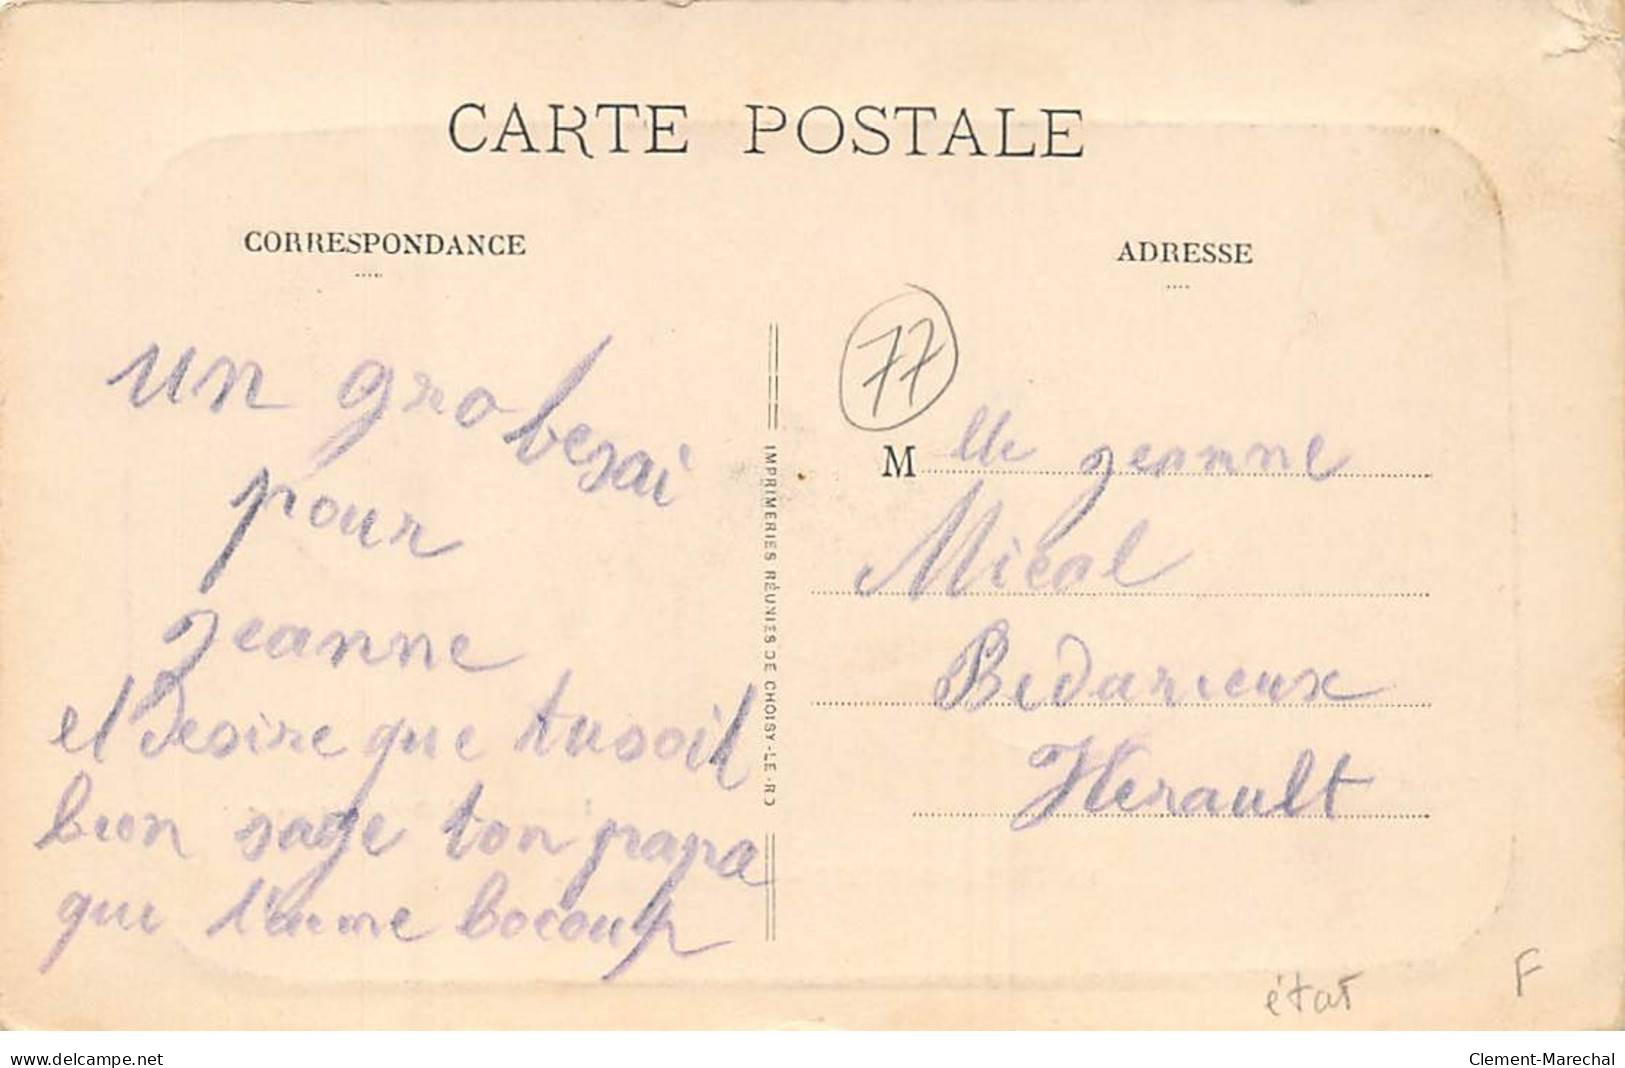 CARTE POSTALE
CORRESPONDANCE
ADRESSE
un gro besai
pour
jeanne
et desire que tu soit
bien sage ton papa
qui t'aime bocoup
IMPRIMERIES RÉUNIES DE CHOISY-LE-R
77
Mlle jeanne
Mical
Bedarieux
Herault
état
F
www.delcampe.net
Clement-Marechal